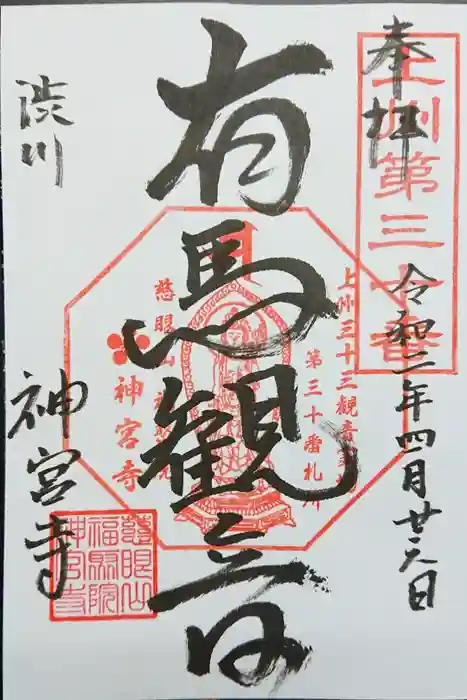 奉拝
上州第三十番
令和二年四月廿六日
有馬觀音
上州三十三観音霊場
第三十番札所
慈眼山
神宮寺
渋川
神宮寺
慈眼山
福聚院
神宮寺